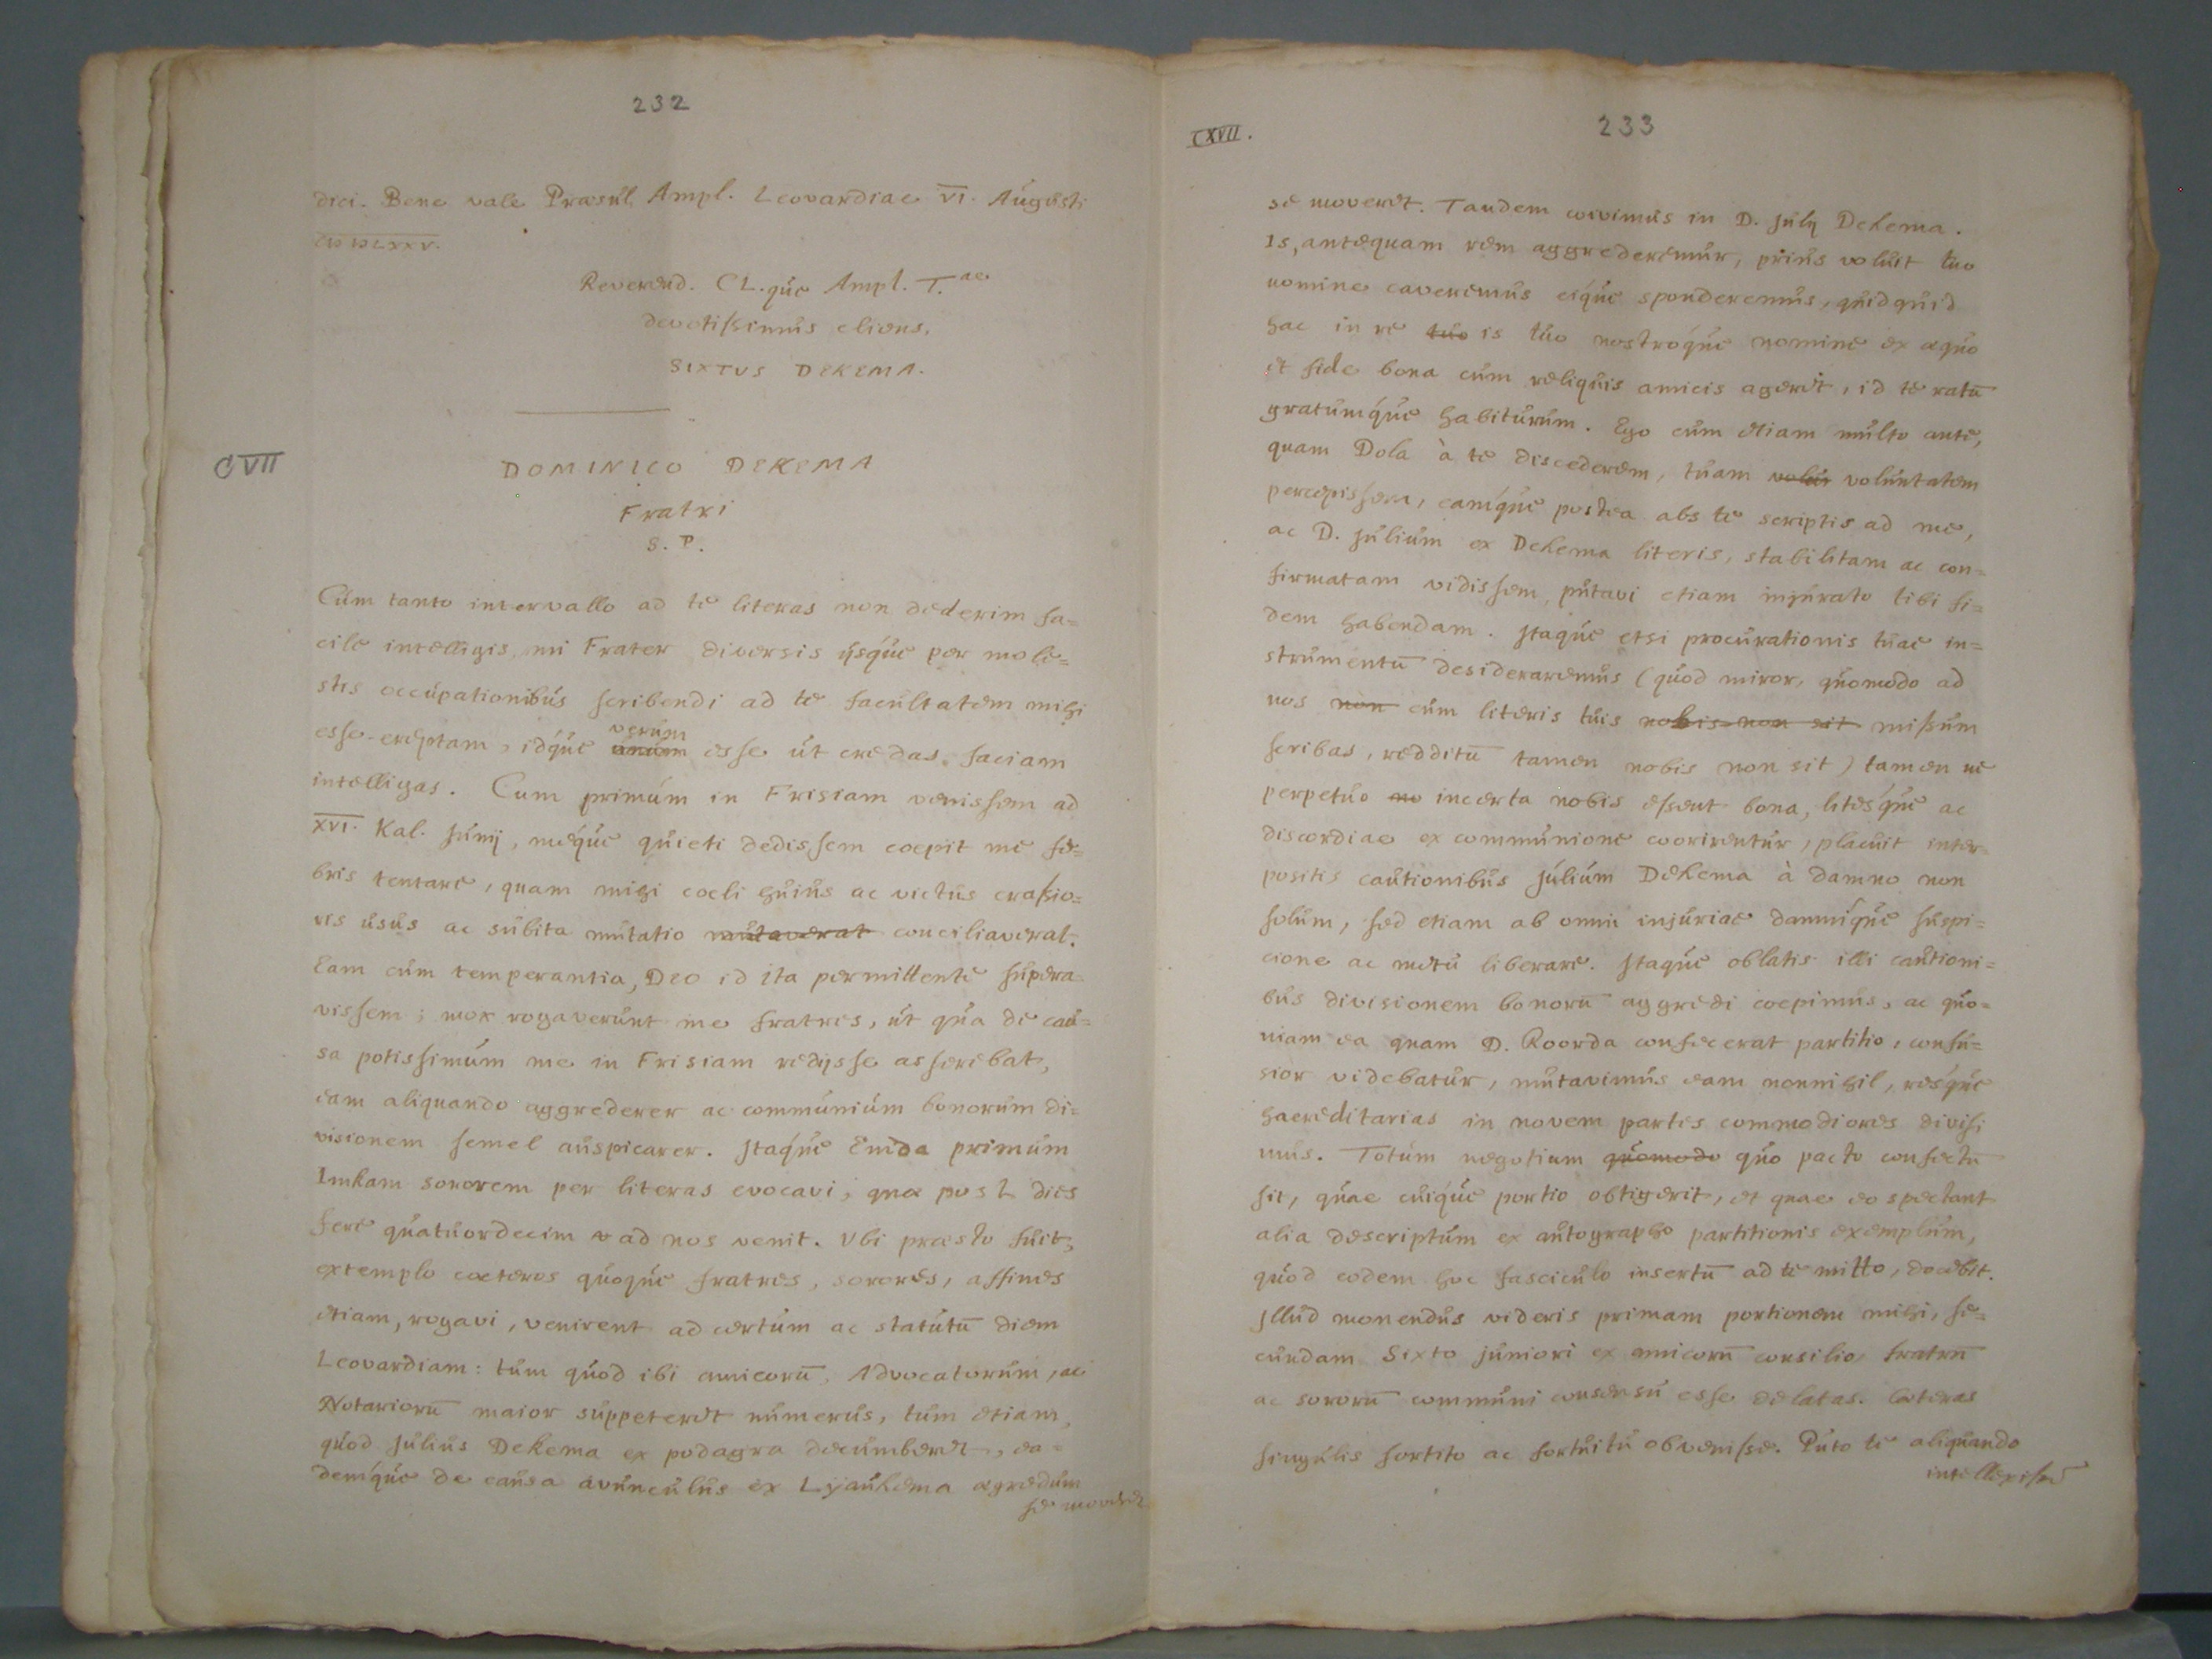 232
dici. Bene vale Præsul Ampl. Leovardiae VI. Augusti
CIƆ IƆ LXXV.
Reverend. CL.que Ampl. T.ae
devotissimus cliens,
SIXTVS DEKEMA.
CVII
DOMINICO DEKEMA
Fratri
S. P.
Cùm tanto intervallo ad te literas non dederim fa=
cile intelligis, mi Frater diversis ijsque per mole=
stis occupationibus scribendi ad te facultatem mihi
esse ereptam, idque verum esse ut credas, faciam
intelligas. Cum primùm in Frisiam venissem ad
XVI. Kal. Junij, meque quieti dedissem coepit me fe=
bris tentare, quam mihi coeli huius ac victus crassio=
ris usus ac subita mutatio mutaverat conciliaverat.
Eam cùm temperantia, Deo id ita permittente supera=
vissem; mox rogaverunt me fratres, ut qua de cau=
sa potissimùm me in Frisiam redijsse asserebat,
eam aliquando aggrederer ac communium bonorum di=
visionem semel auspicarer. Itaque Emda primùm
Imkam sororem per literas evocavi, quæ post dies
fere quatuordecim v ad nos venit. Vbi præsto fuit,
extemplo cæteros quoque fratres, sorores, affines
etiam, rogavi, venirent ad certum ac statutū diem
Leovardiam: tum quod ibi amicorū, Advocatorum, ac
Notariorū maior suppeteret numerus, tum etiam,
quod Julius Dekema ex podagra decumberet, ea=
demque de causa avunculus ex Lyaukema ægredum
se moveret
CXVII.
233
se moveret. Tandem coivimus in D. Julij Dekema.
Is, antequam rem aggrederemur, prius voluit tuo
nomine caveremus eique sponderemus, quidquid
hac in re tuo is tuo nostroque nomine ex æquo
et fide bona cum reliquis amicis ageret, id te ratū
gratumque habiturum. Ego cum etiam multo ante,
quam Dola à te discederem, tuam volun voluntatem
percepissem, eamque postea abs te scriptis ad me,
ac D. Julium ex Dekema literis, stabilitam ac con=
firmatam vidissem, putavi etiam injurato tibi fi=
dem habendam. Itaque etsi procurationis tuae in=
strumentū desideraremus (quod miror, quomodo ad
nos non cum literis tuis nobis non sit missum
scribas, redditū tamen nobis non sit) tamen ne
perpetuo no incerta nobis essent bona, litesque ac
discordiae ex communione coorirentur, placuit inter=
positis cautionibus Julium Dekema à damno non
solum, sed etiam ab omni injuriae damnique suspi=
cione ac metu liberare. Itaque oblatis illi cautioni=
bus divisionem bonorū aggredi coepimus, ac quo=
niam ea quam D. Roorda confecerat partitio, confu=
sior videbatur, mutavimus eam nonnihil, resque
haereditarias in novem partes commodiores divisi
mus. Totum negotium quomodo quo pacto confectū
sit, quae cuique portio obtigerit, et quae eo spectant
alia descriptum ex autographo partitionis exemplum,
quod eodem hoc fasciculo insertū ad te mitto, docebit.
Illud monendus videris primam portionem mihi, se=
cundam Sixto juniori ex amicorū consilio, fratrū
ac sororū communi consensu esse delatas. Cæteras
singulis sortito ac fortuitu obvenisse. Puto te aliquando
intellexisse